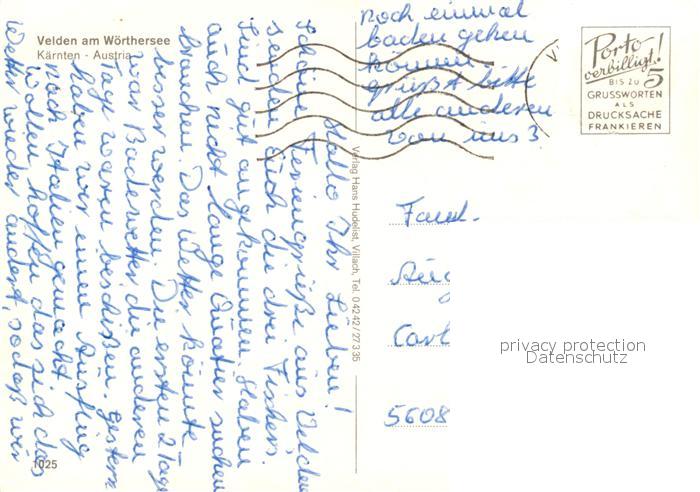 Velden am Wörthersee
Kärnten - Austria
Hallo Ihr Lieben!
Schöne Feriengrüße aus Velden
senden Euch die drei Fischers.
Sind gut angekommen. Haben
auch nicht lange Quatier suchen
brauchen. Das Wetter könnte
besser werden. Die ersten 2 Tage
war Badewetter die anderen
Tage waren beschissen. Gestern
haben wir einen Ausflug
nach Italien gemacht.
Wollen hoffen das sich das
Wetter wieder ändert, sodaß wir
noch einmal
baden gehen
können.
grüßt bitte
alle anderen
von uns 3
Verlag Hans Hudelist, Villach, Tel. 04242/27335
Porto
verbilligt!
BIS ZU 5
GRUSSWORTEN
ALS
DRUCKSACHE
FRANKIEREN
Fam.
Carl
5608
privacy protection
Datenschutz
1025